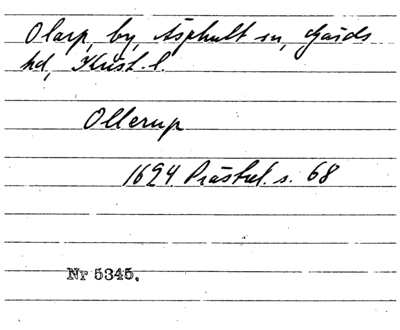 Olarp, by, Asphult sn, Gärds
hd, Krist. l.
Ollerup
1624 Prästrel. s. 68
Nr 5345.